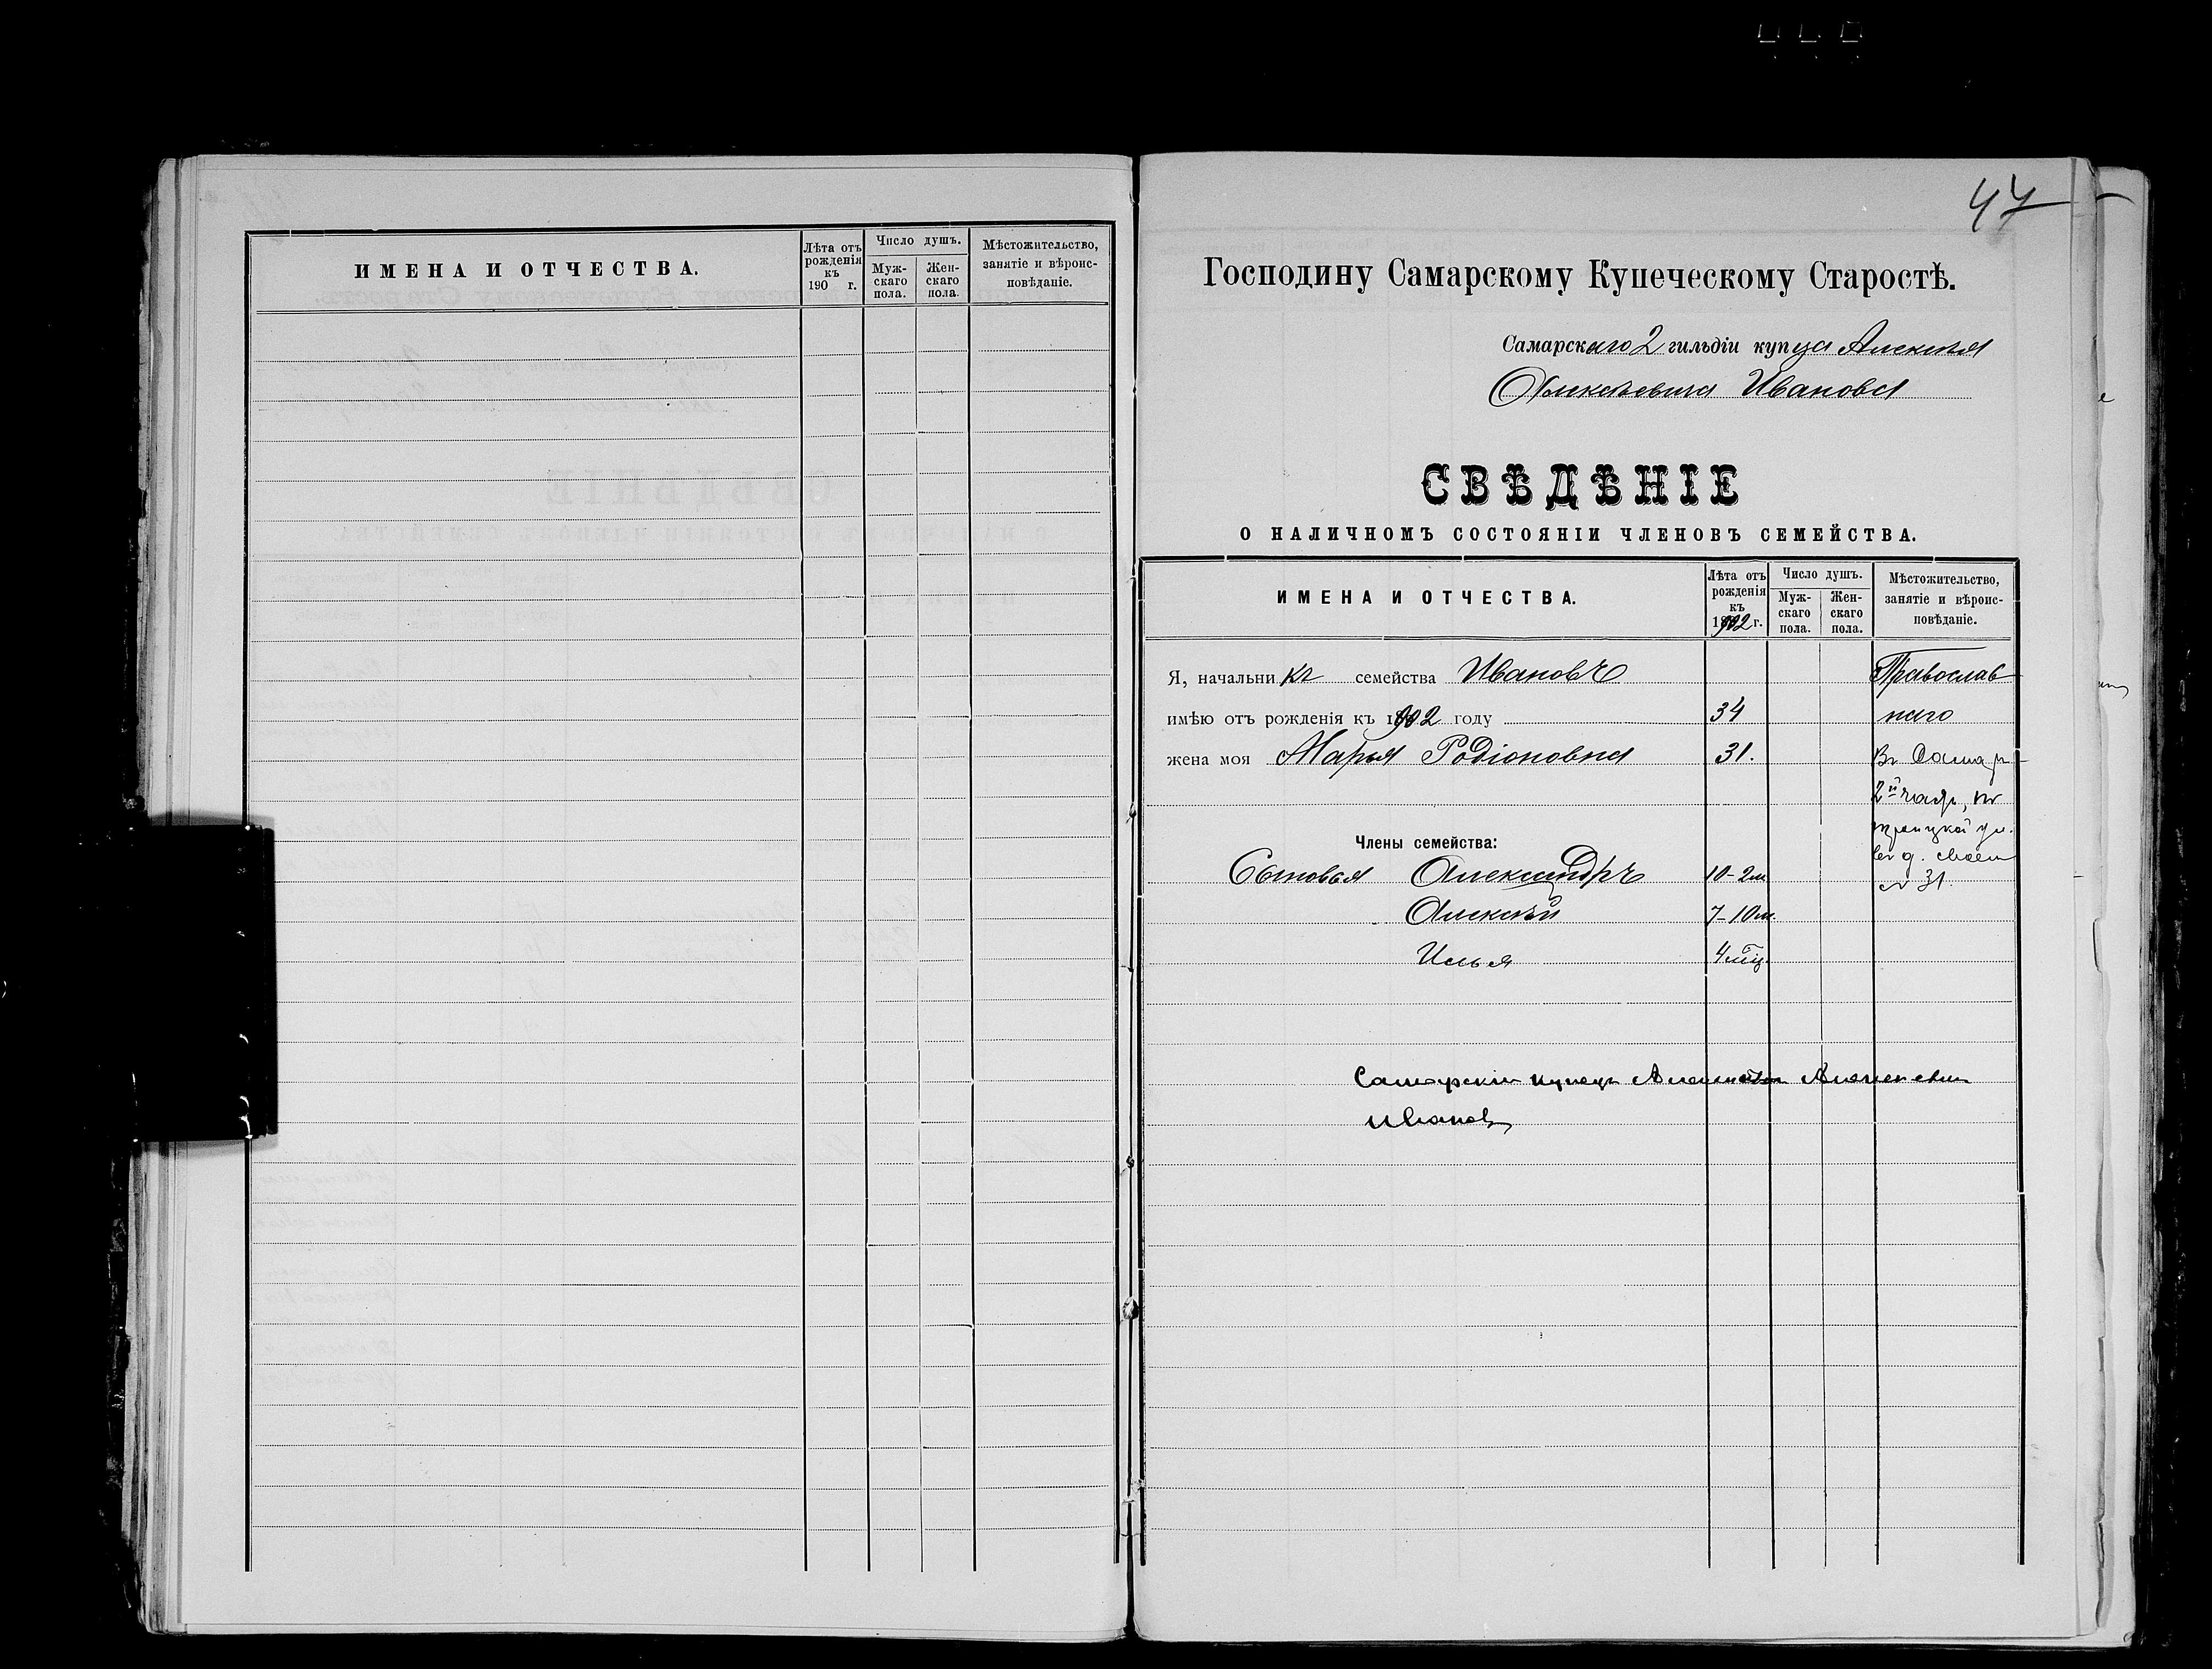 ИМЕНА И ОТЧЕСТВА.
Лѣта отъ рожденія къ 190 г.
Число душъ.
Муж-скаго пола.
Жен-скаго пола.
Мѣстожительство, занятіе и вѣроис-повѣданіе.
47
Господину Самарскому Купеческому Старостѣ.
Самарскаго 2 гильдіи купца Алексѣя
Алексѣевича Иванова
СВѢДѢНІЕ
О НАЛИЧНОМЪ СОСТОЯНІИ ЧЛЕНОВЪ СЕМЕЙСТВА.
ИМЕНА И ОТЧЕСТВА.
Лѣта отъ рожденія къ 1902 г.
Число душъ.
Муж-скаго пола.
Жен-скаго пола.
Мѣстожительство, занятіе и вѣроис-повѣданіе.
Я, начальникъ семейства Ивановъ Православ
имѣю отъ рожденія къ 1902 году 34 наго
жена моя Марья Родіоновна 31. Въ Самар
2й част, по
троицкой ул.
Члены семейства:
въ д. своем
Сыновья Александръ 10-2м № 31.
Алексѣй 7-10м.
Илья 4 мѣц.
Самарскій купецъ Алексѣй Алексеевич
Иванов